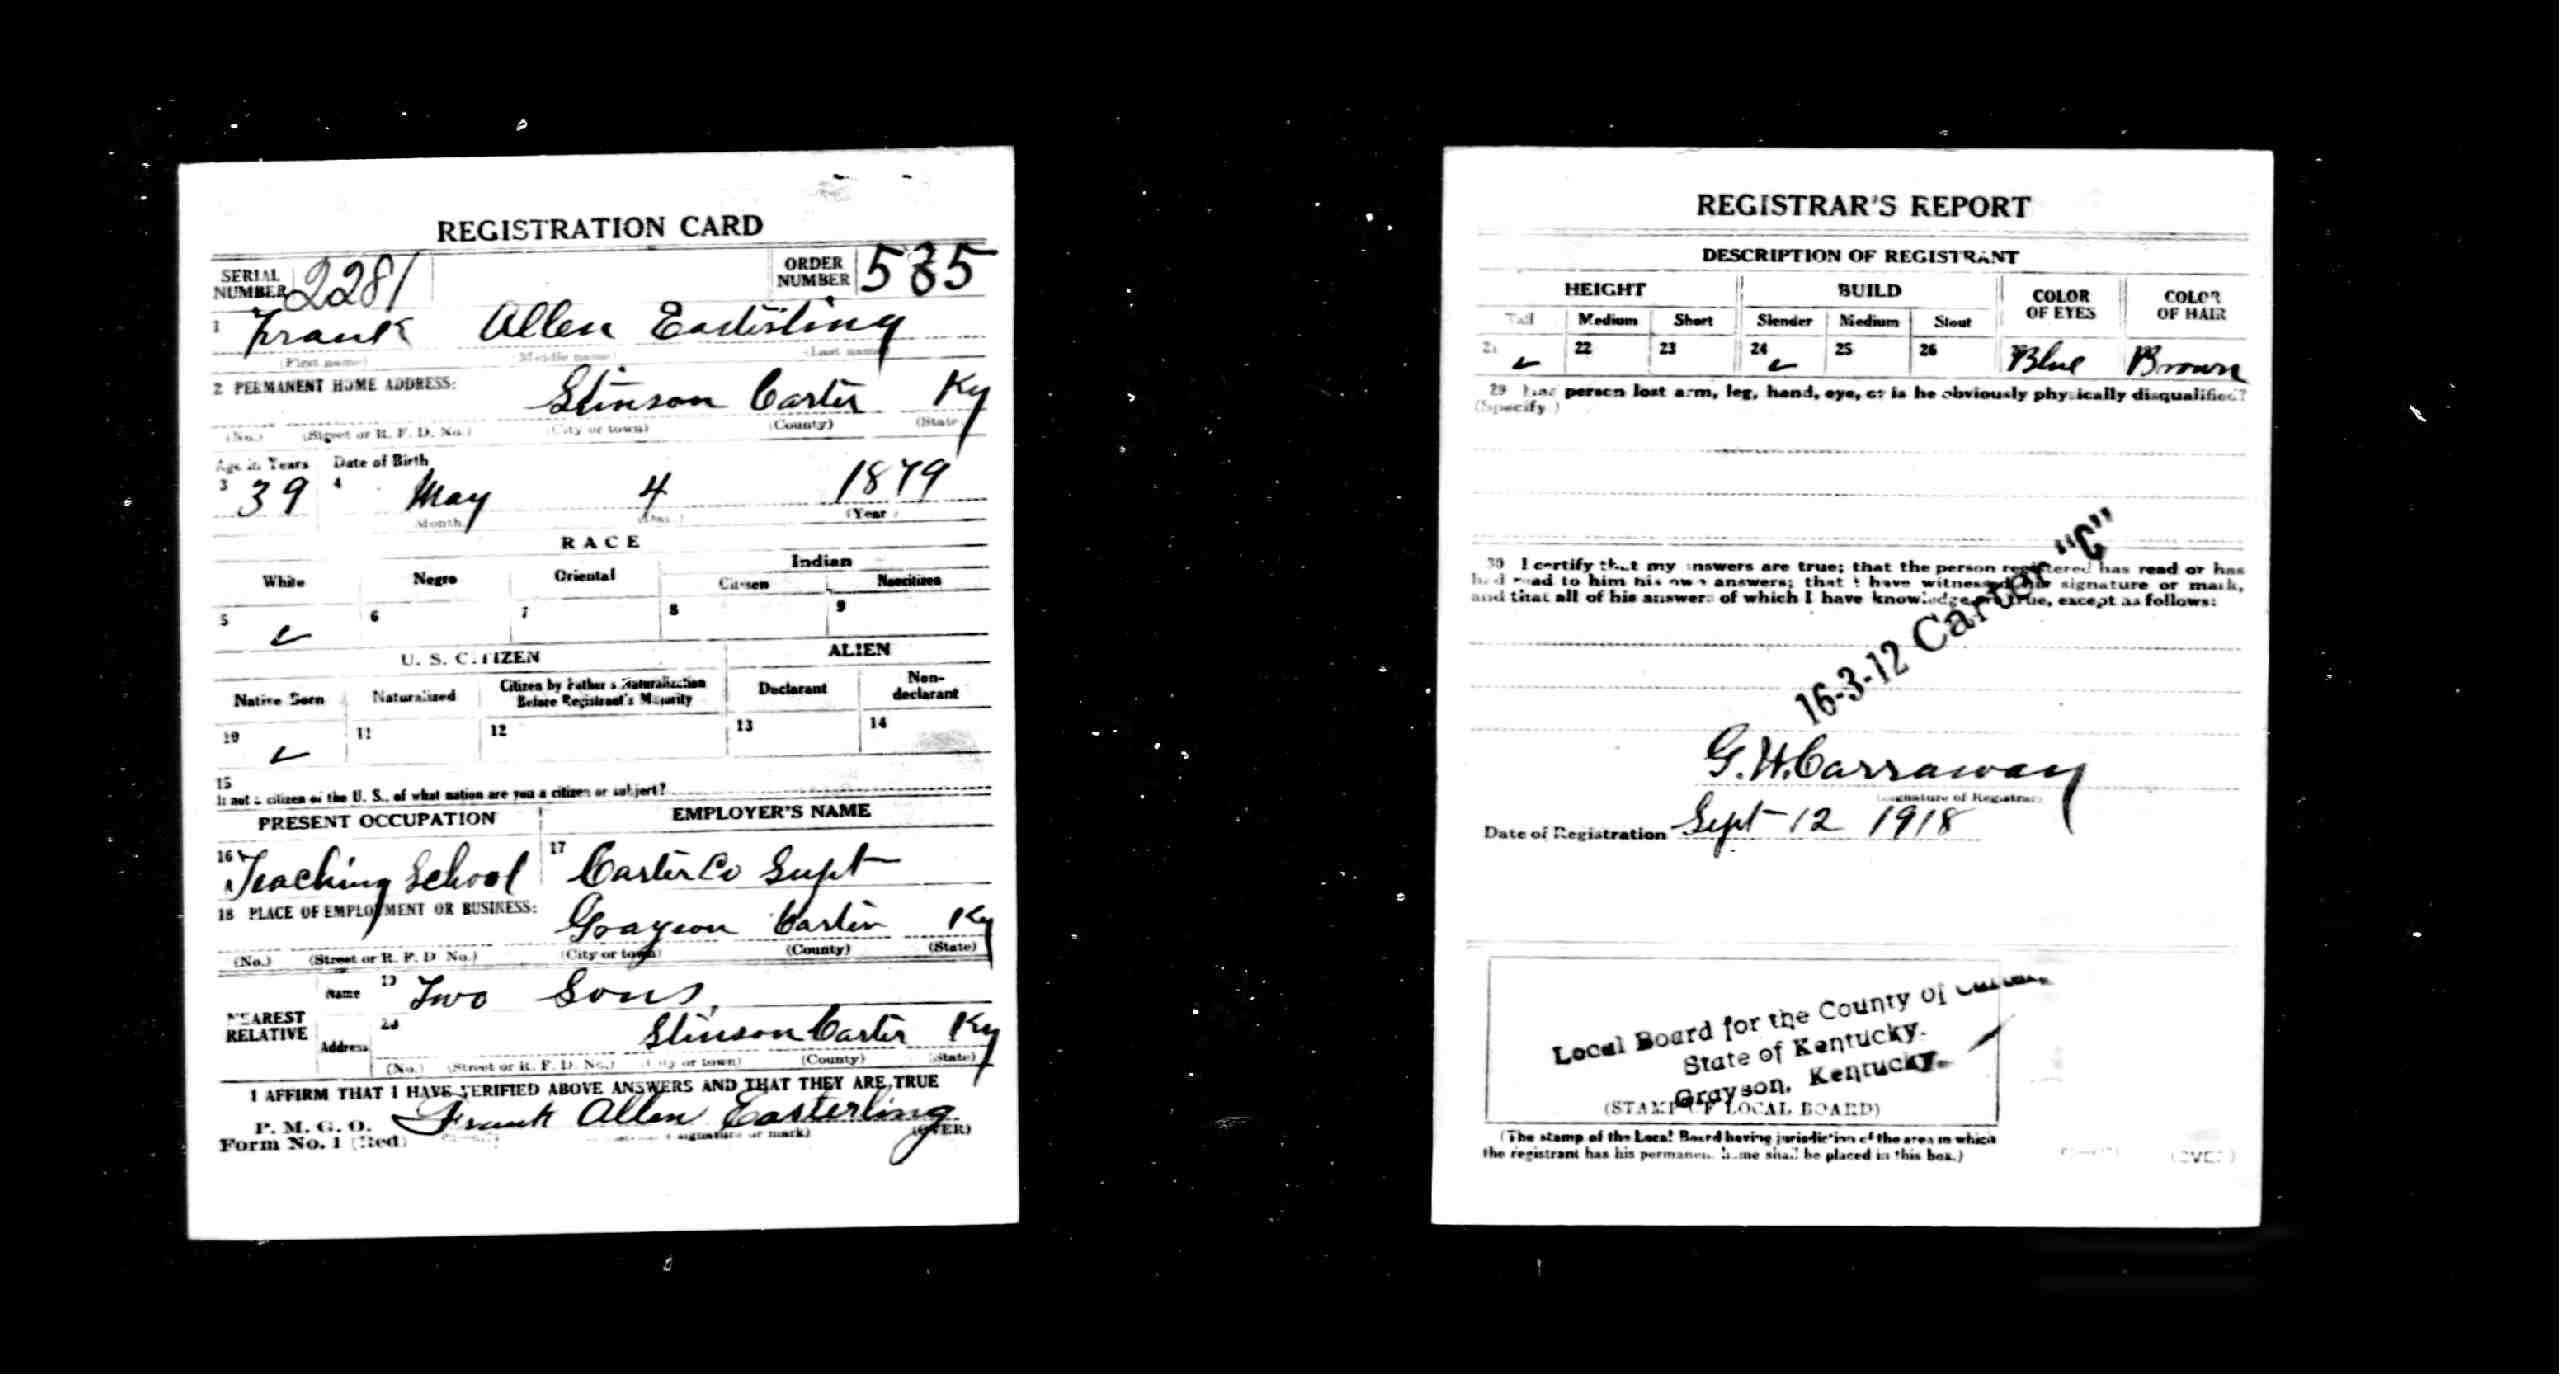 REGISTRATION CARD
SERIAL NUMBER 2281 ORDER NUMBER 535
1 Frank Allen Easterling
(First name) (Middle name) (Last name)
2 PERMANENT HOME ADDRESS:
Stinson Carter Ky
(No.) (Street or R. F. D. No.) (City or town) (County) (State)
Age in Years Date of Birth
3 39 4 May 4 1879
Month (Day.) (Year)
RACE
White Negro Oriental Indian
Citizen Noncitizen
5 ✓ 6 7 8 9
U. S. CITIZEN ALIEN
Native Born Naturalized Citizen by Father's Naturalization Before Registrant's Majority Declarant Non-declarant
10 ✓ 11 12 13 14
15
If not a citizen of the U. S., of what nation are you a citizen or subject?
PRESENT OCCUPATION EMPLOYER'S NAME
16 Teaching School 17 Carter Co Supt
18 PLACE OF EMPLOYMENT OR BUSINESS:
Grayson Carter Ky
(No.) (Street or R. F. D. No.) (City or town) (County) (State)
NEAREST RELATIVE
Name 19 Two Sons
Address 20 Stinson Carter Ky
(No.) (Street or R. F. D. No.) (City or town) (County) (State)
I AFFIRM THAT I HAVE VERIFIED ABOVE ANSWERS AND THAT THEY ARE TRUE
P. M. G. O.
Form No. 1 (Red) Frank Allen Easterling
signature or mark) (OVER)
REGISTRAR'S REPORT
DESCRIPTION OF REGISTRANT
HEIGHT BUILD COLOR OF EYES COLOR OF HAIR
Tall Medium Short Slender Medium Stout
21 ✓ 22 23 24 ✓ 25 26 Blue Brown
29 Has person lost arm, leg, hand, eye, or is he obviously physically disqualified?
(Specify.)
30 I certify that my answers are true; that the person registered has read or has
had read to him his own answers; that I have witnessed his signature or mark,
and that all of his answers of which I have knowledge are true, except as follows:
16-3-12 Carter "C"
G. H. Carraway
(Signature of Registrar)
Date of Registration Sept 12 1918
Local Board for the County of Carter,
State of Kentucky.
Grayson, Kentucky.
(STAMP OF LOCAL BOARD)
(The stamp of the Local Board having jurisdiction of the area in which
the registrant has his permanent home shall be placed in this box.)
(OVER)